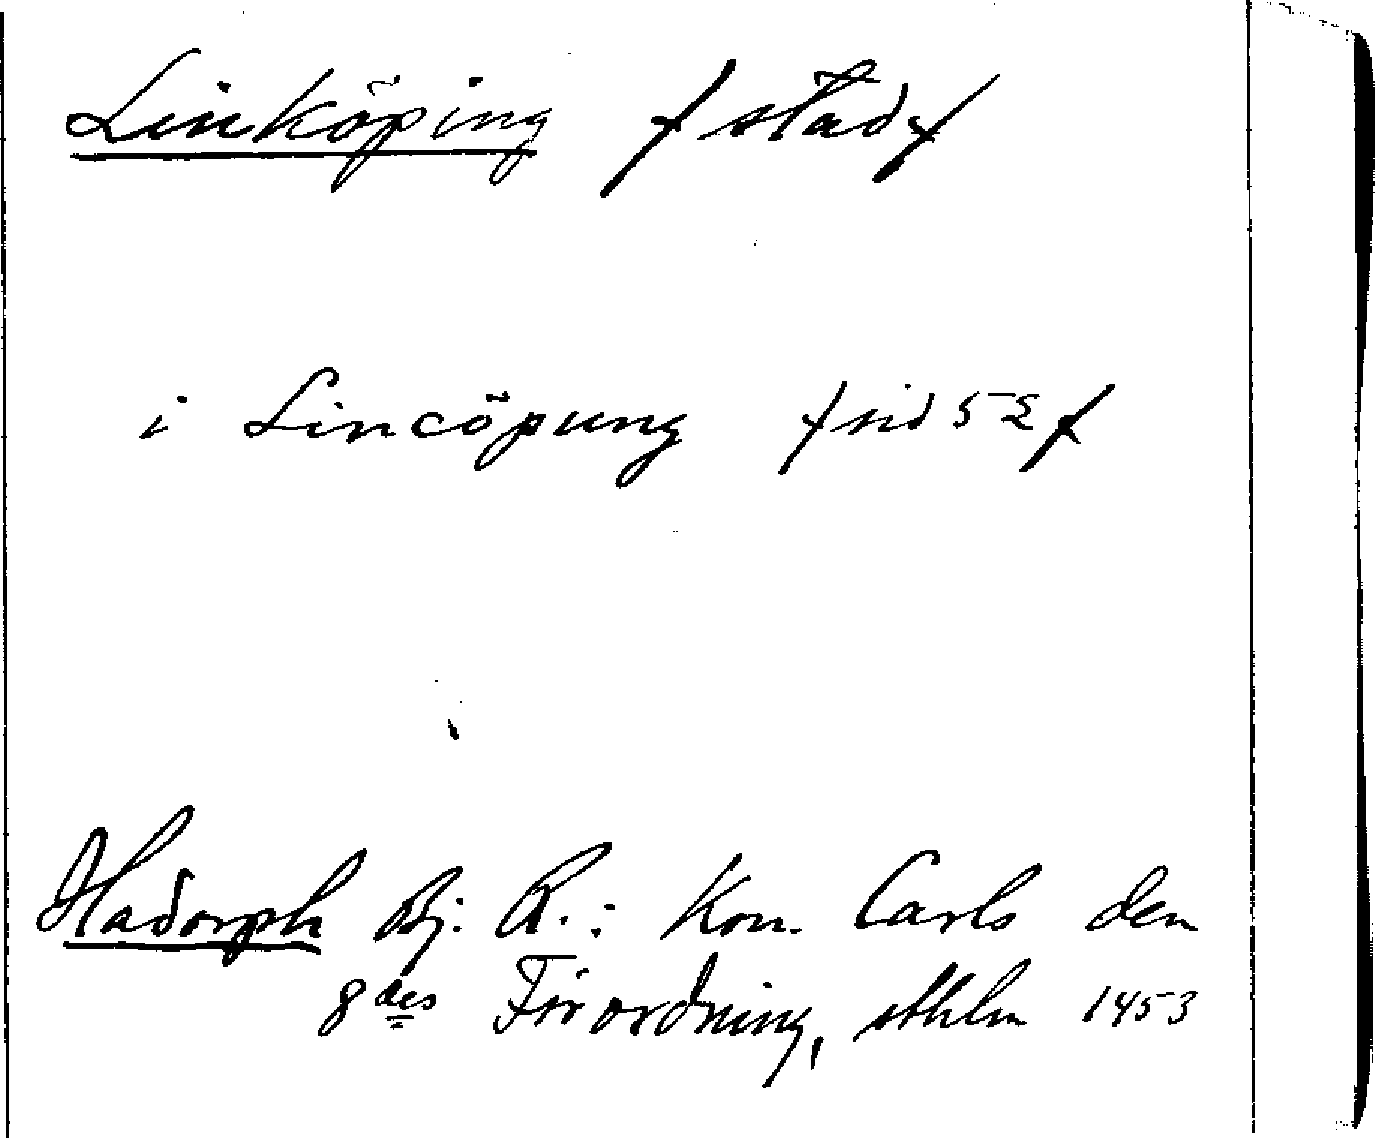 Linköping /stad/
i Lincöpung /sid 52/
Hadorph Bj. R.: Kon. Carls den
8des Förordning, sthlm 1453